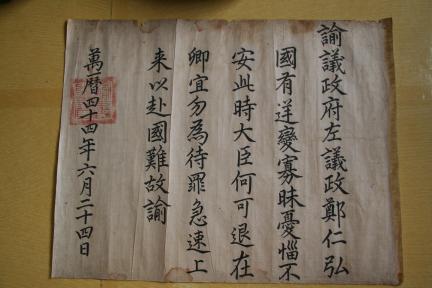 諭議政府左議政鄭仁弘
國有逆變寡昧憂惱不
安此時大臣何可退在
卿宜勿為待罪急速上
来以赴國難故諭
萬曆四十四年六月二十四日